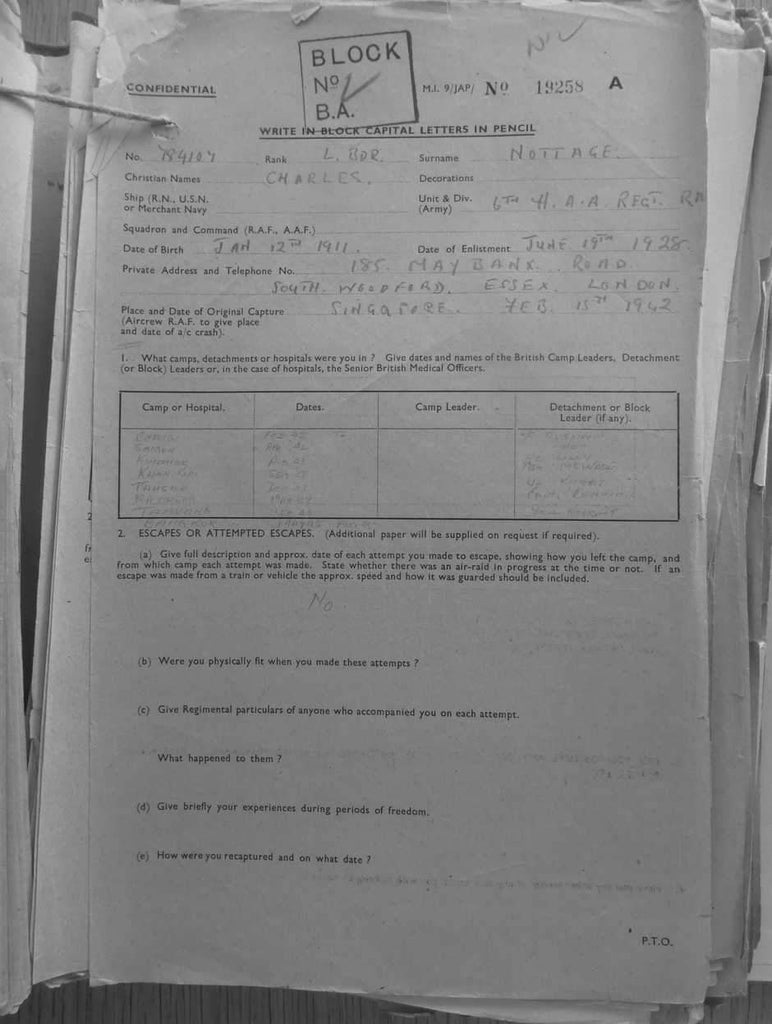 BLOCK
No
B.A.
CONFIDENTIAL
M.I. 9/JAP/ No 19258 A
WRITE IN BLOCK CAPITAL LETTERS IN PENCIL
No. Rank L. BDR. Surname NOTTAGE.
Christian Names CHARLES. Decorations
Ship (R.N., U.S.N. Unit & Div. 6TH H.A.A. REGT. RA
or Merchant Navy (Army)
Squadron and Command (R.A.F., A.A.F.)
Date of Birth JAN 12TH 1911. Date of Enlistment JUNE 19TH 1928.
Private Address and Telephone No. 185. MAYBANK. ROAD.
SOUTH. WOODFORD. ESSEX. LONDON.
Place and Date of Original Capture SINGAPORE. FEB. 15TH 1942
(Aircrew R.A.F. to give place
and date of a/c crash).
1. What camps, detachments or hospitals were you in ? Give dates and names of the British Camp Leaders, Detachment
(or Block) Leaders or, in the case of hospitals, the Senior British Medical Officers.
Camp or Hospital. Dates. Camp Leader. Detachment or Block
Leader (if any).
CHANGI FEB 42
TAMUANG
BANGKOK
2. ESCAPES OR ATTEMPTED ESCAPES. (Additional paper will be supplied on request if required).
(a) Give full description and approx. date of each attempt you made to escape, showing how you left the camp, and
from which camp each attempt was made. State whether there was an air-raid in progress at the time or not. If an
escape was made from a train or vehicle the approx. speed and how it was guarded should be included.
No
(b) Were you physically fit when you made these attempts ?
(c) Give Regimental particulars of anyone who accompanied you on each attempt.
What happened to them ?
(d) Give briefly your experiences during periods of freedom.
(e) How were you recaptured and on what date ?
P.T.O.